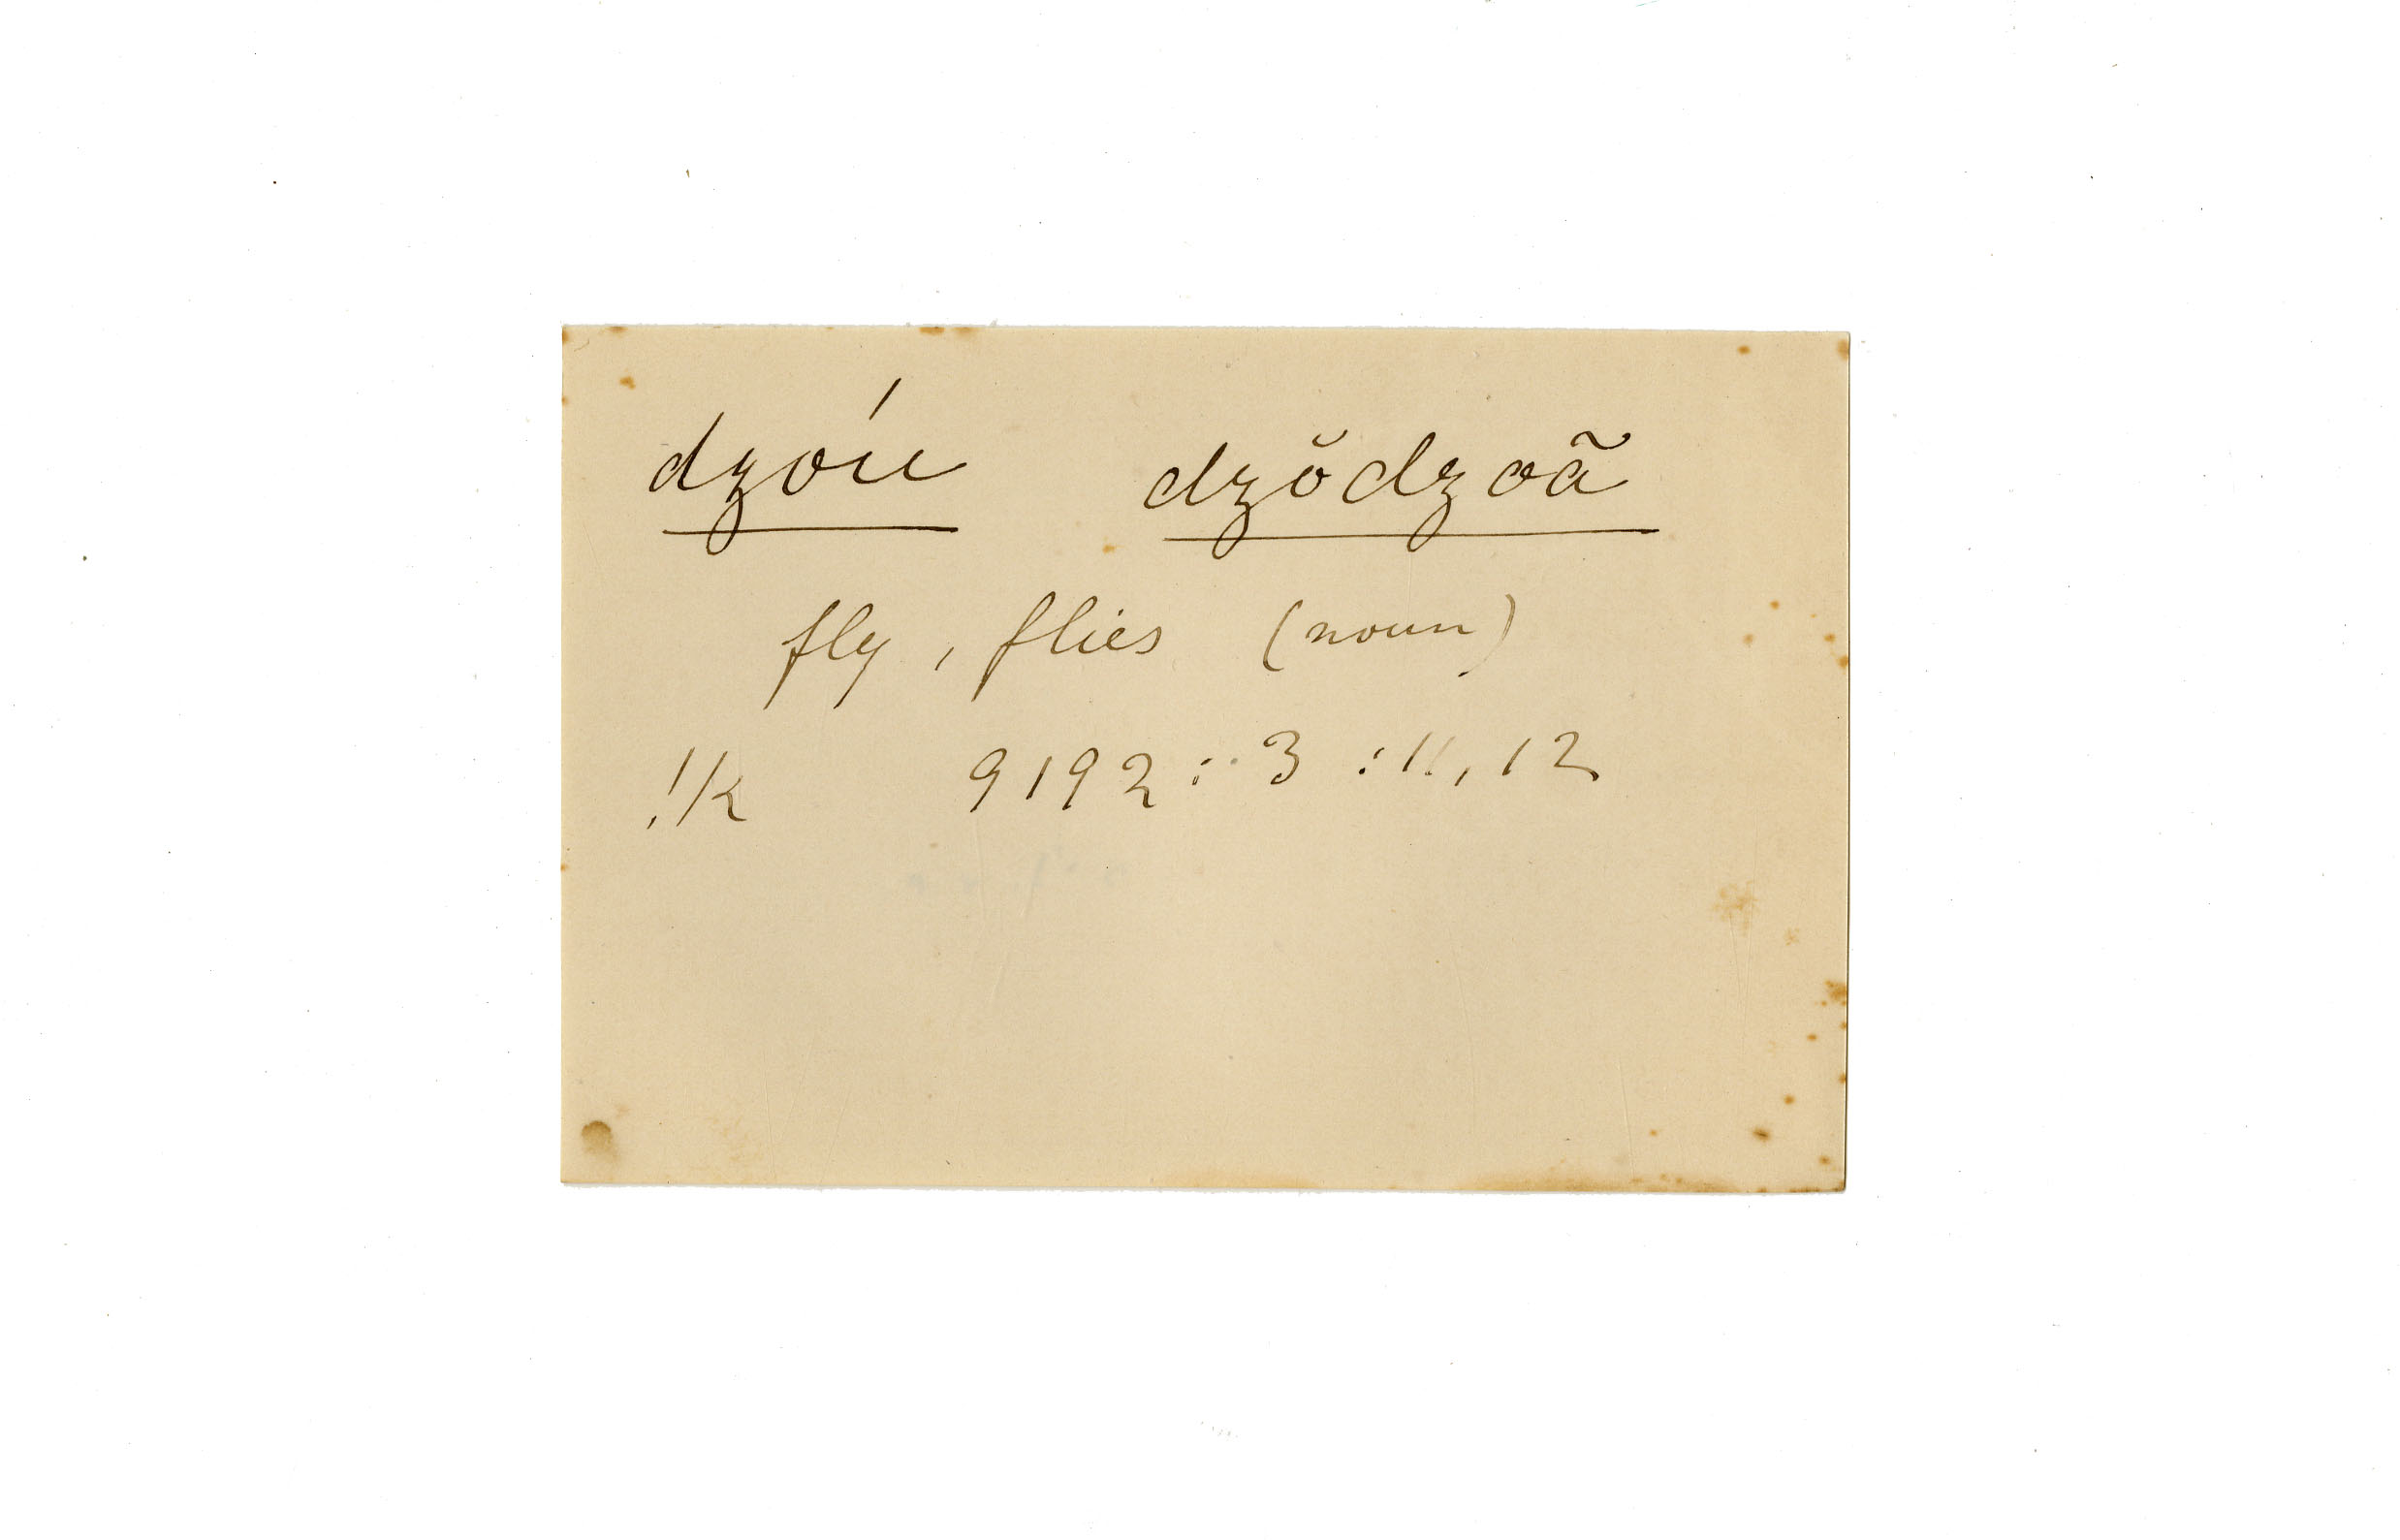 dzoú dzŏdzoã
fly, flies (noun)
!k 9192 : 3 : 11, 12